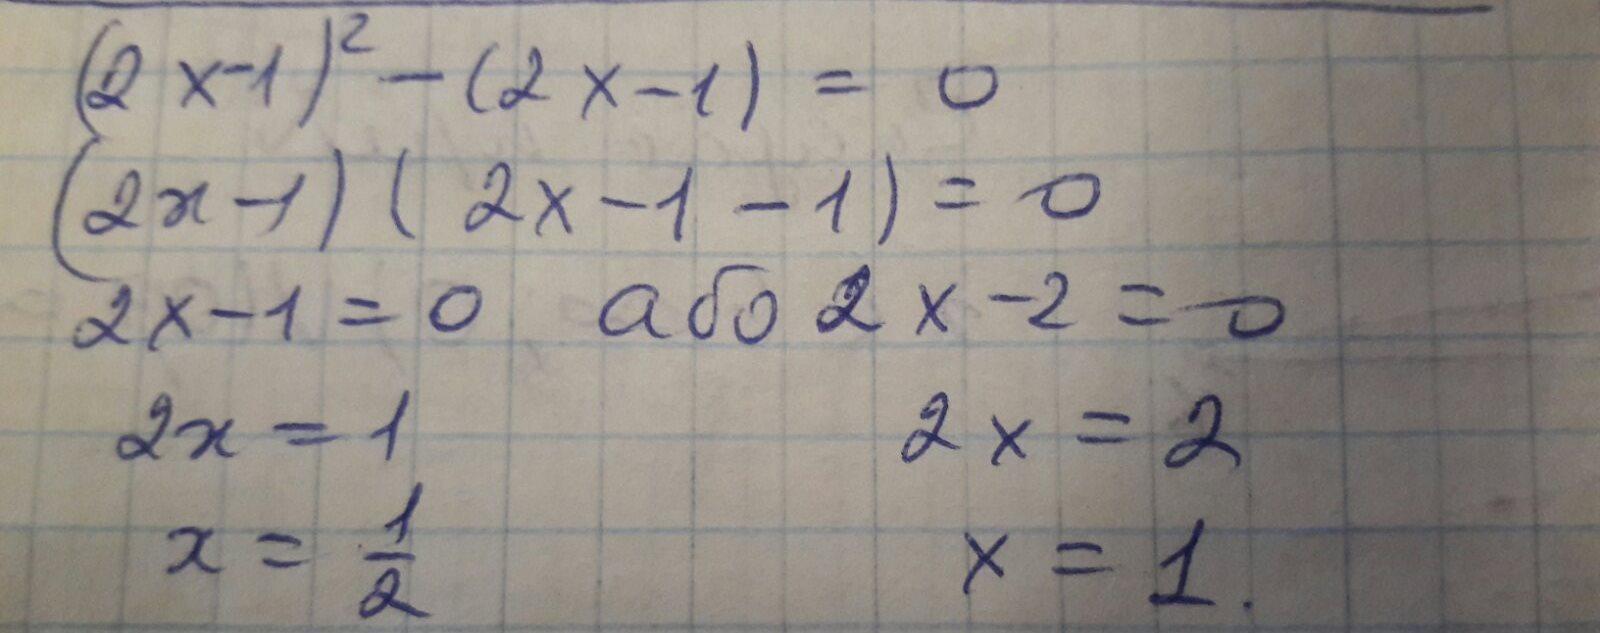 (2x-1)² - (2x-1) = 0
(2x-1)(2x-1-1) = 0
2x-1=0 або 2x-2=0
2x=1 2x=2
x=1/2 x=1.